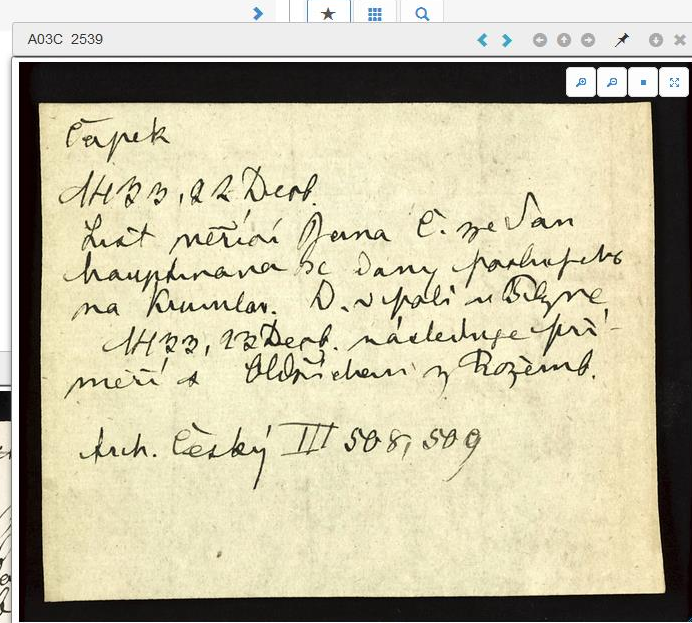 A03C 2539
Čapek
1433, 22 Decb.
List měřící Jana Č. ze San
hauptmana se
na Krumlov. D. v poli u
1433, 23 Decb. následuje pří-
měří s Oldřichem z Rožemb.
Arch. Český III 508, 509